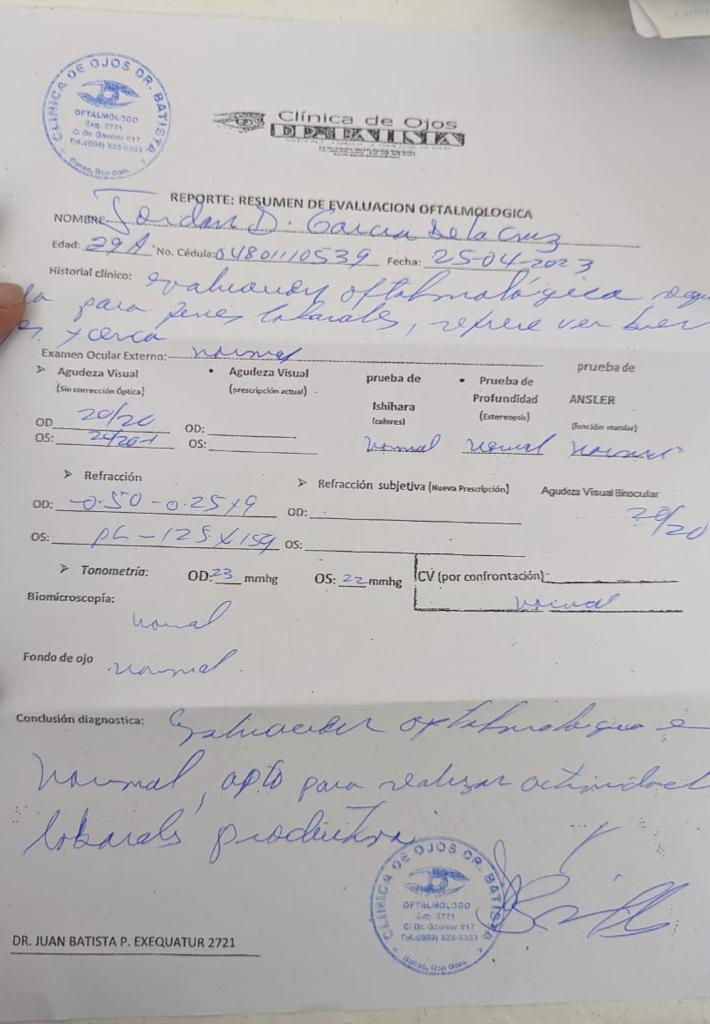 CLINICA DE OJOS DR. BATISTA
OFTALMOLOGO
Exq. 2721
C/ Dr. Gautier #17
Tel.:(809)
Clínica de Ojos
DR BATISTA
REPORTE: RESUMEN DE EVALUACION OFTALMOLOGICA
NOMBRE Jordan D. Garcia De la Cruz
Edad: 29 A No. Cédula: 04801110539 Fecha: 25-04-2023
Historial clínico: evaluacion oftalmológica
para fines laborales, refiere ver bien
y cerca
Examen Ocular Externo: normal
Agudeza Visual • Agudeza Visual prueba de • Prueba de prueba de
(Sin corrección Óptica) (prescripción actual) Ishihara Profundidad ANSLER
(colores) (Estereopsis) (función macular)
OD 20/20 OD:
OS: 20/20-1 OS: normal normal normal
Refracción Refracción subjetiva (Nueva Prescripción) Agudeza Visual Binocular
OD: -0.50 -0.25x9 OD: 20/20
OS: PL -125 x 159 OS:
Tonometría: OD: 23 mmhg OS: 22 mmhg CV (por confrontación):
normal
Biomicroscopía:
normal
Fondo de ojo normal
Conclusión diagnostica: Evaluacion oftalmologica
normal, apto para realizar actividad
laborales productiva
CLINICA DE OJOS DR. BATISTA
OFTALMOLOGO
Exq. 2721
C/ Dr. Gautier #17
Tel.:(809)
DR. JUAN BATISTA P. EXEQUATUR 2721